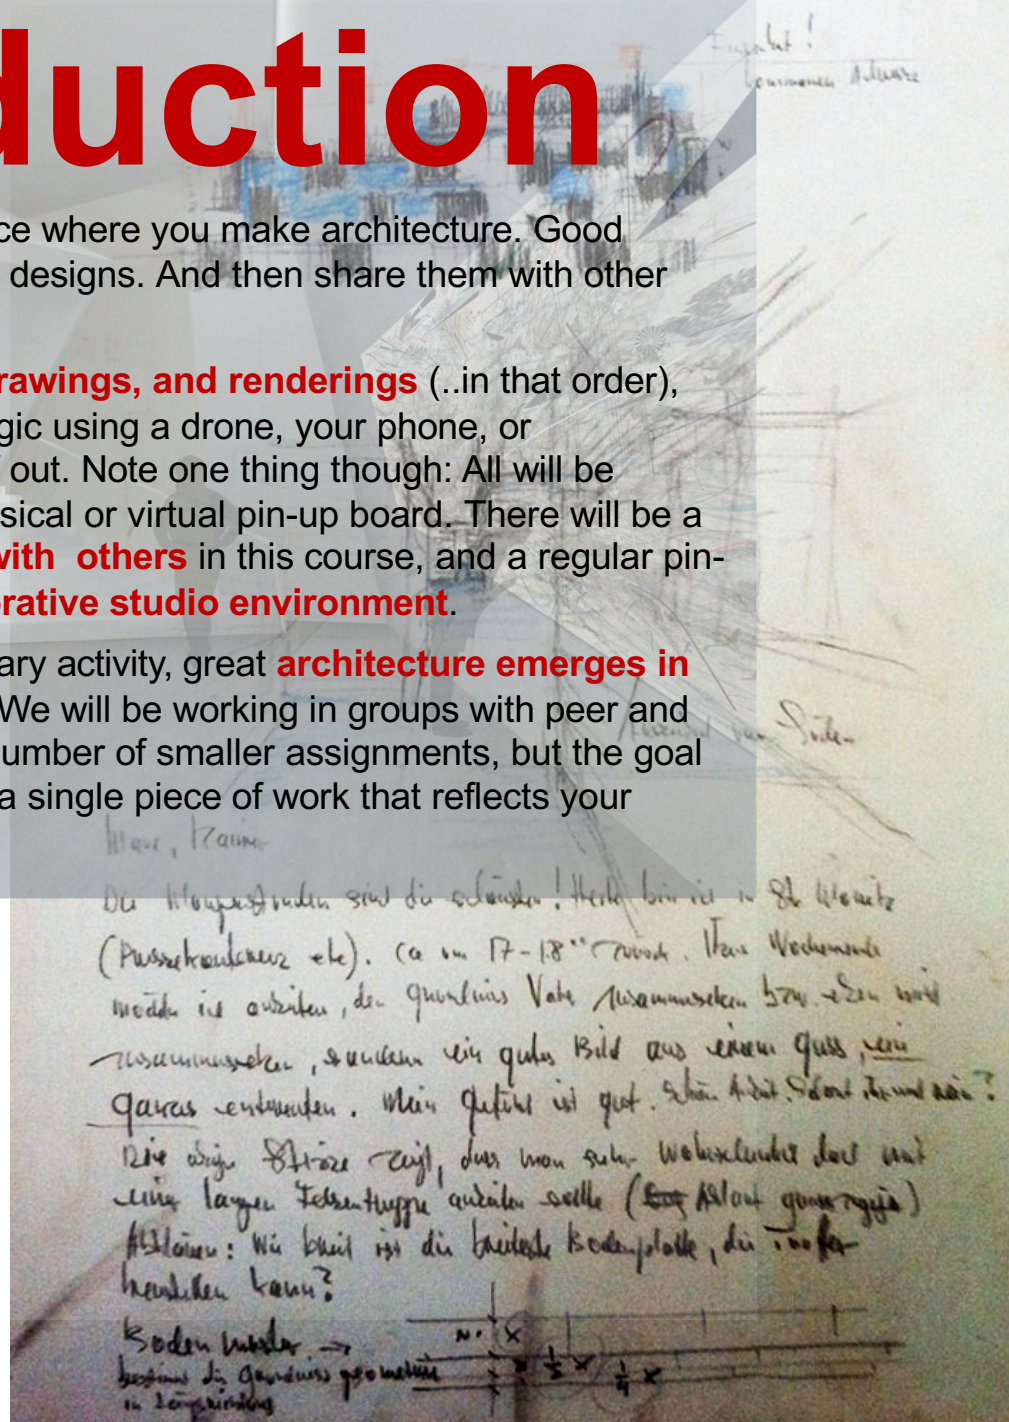 duction
Important!
kommenen Adresse
ce where you make architecture. Good
designs. And then share them with other
rawings, and renderings (..in that order),
gic using a drone, your phone, or
out. Note one thing though: All will be
sical or virtual pin-up board. There will be a
with others in this course, and a regular pin-
rative studio environment.
ary activity, great architecture emerges in
We will be working in groups with peer and
umber of smaller assignments, but the goal
a single piece of work that reflects your
von Süden
Die Morgenstunden sind die schönsten! Heute bin ich in St. Moritz
(Pressekonferenz etc). Ca um 17-18°° zurück. Wochenende
möchte ich arbeiten, den Grundriss zusammensetzen bzw.
zusammensetzen, sondern ein gutes Bild aus einem Guss, ein
ganzes entwerfen. Mein Gefühl ist gut.
Skizze zeigt, dass man sehr wahrscheinlich doch mit
einer langen Felsentreppe arbeiten sollte
Abklären: Wie breit ist die breiteste Bodenplatte, die
herstellen kann?
Boden muster →
bestimmt die Grundriss geometrie
in Längsrichtung
N. X
1/2 X
1/4 X